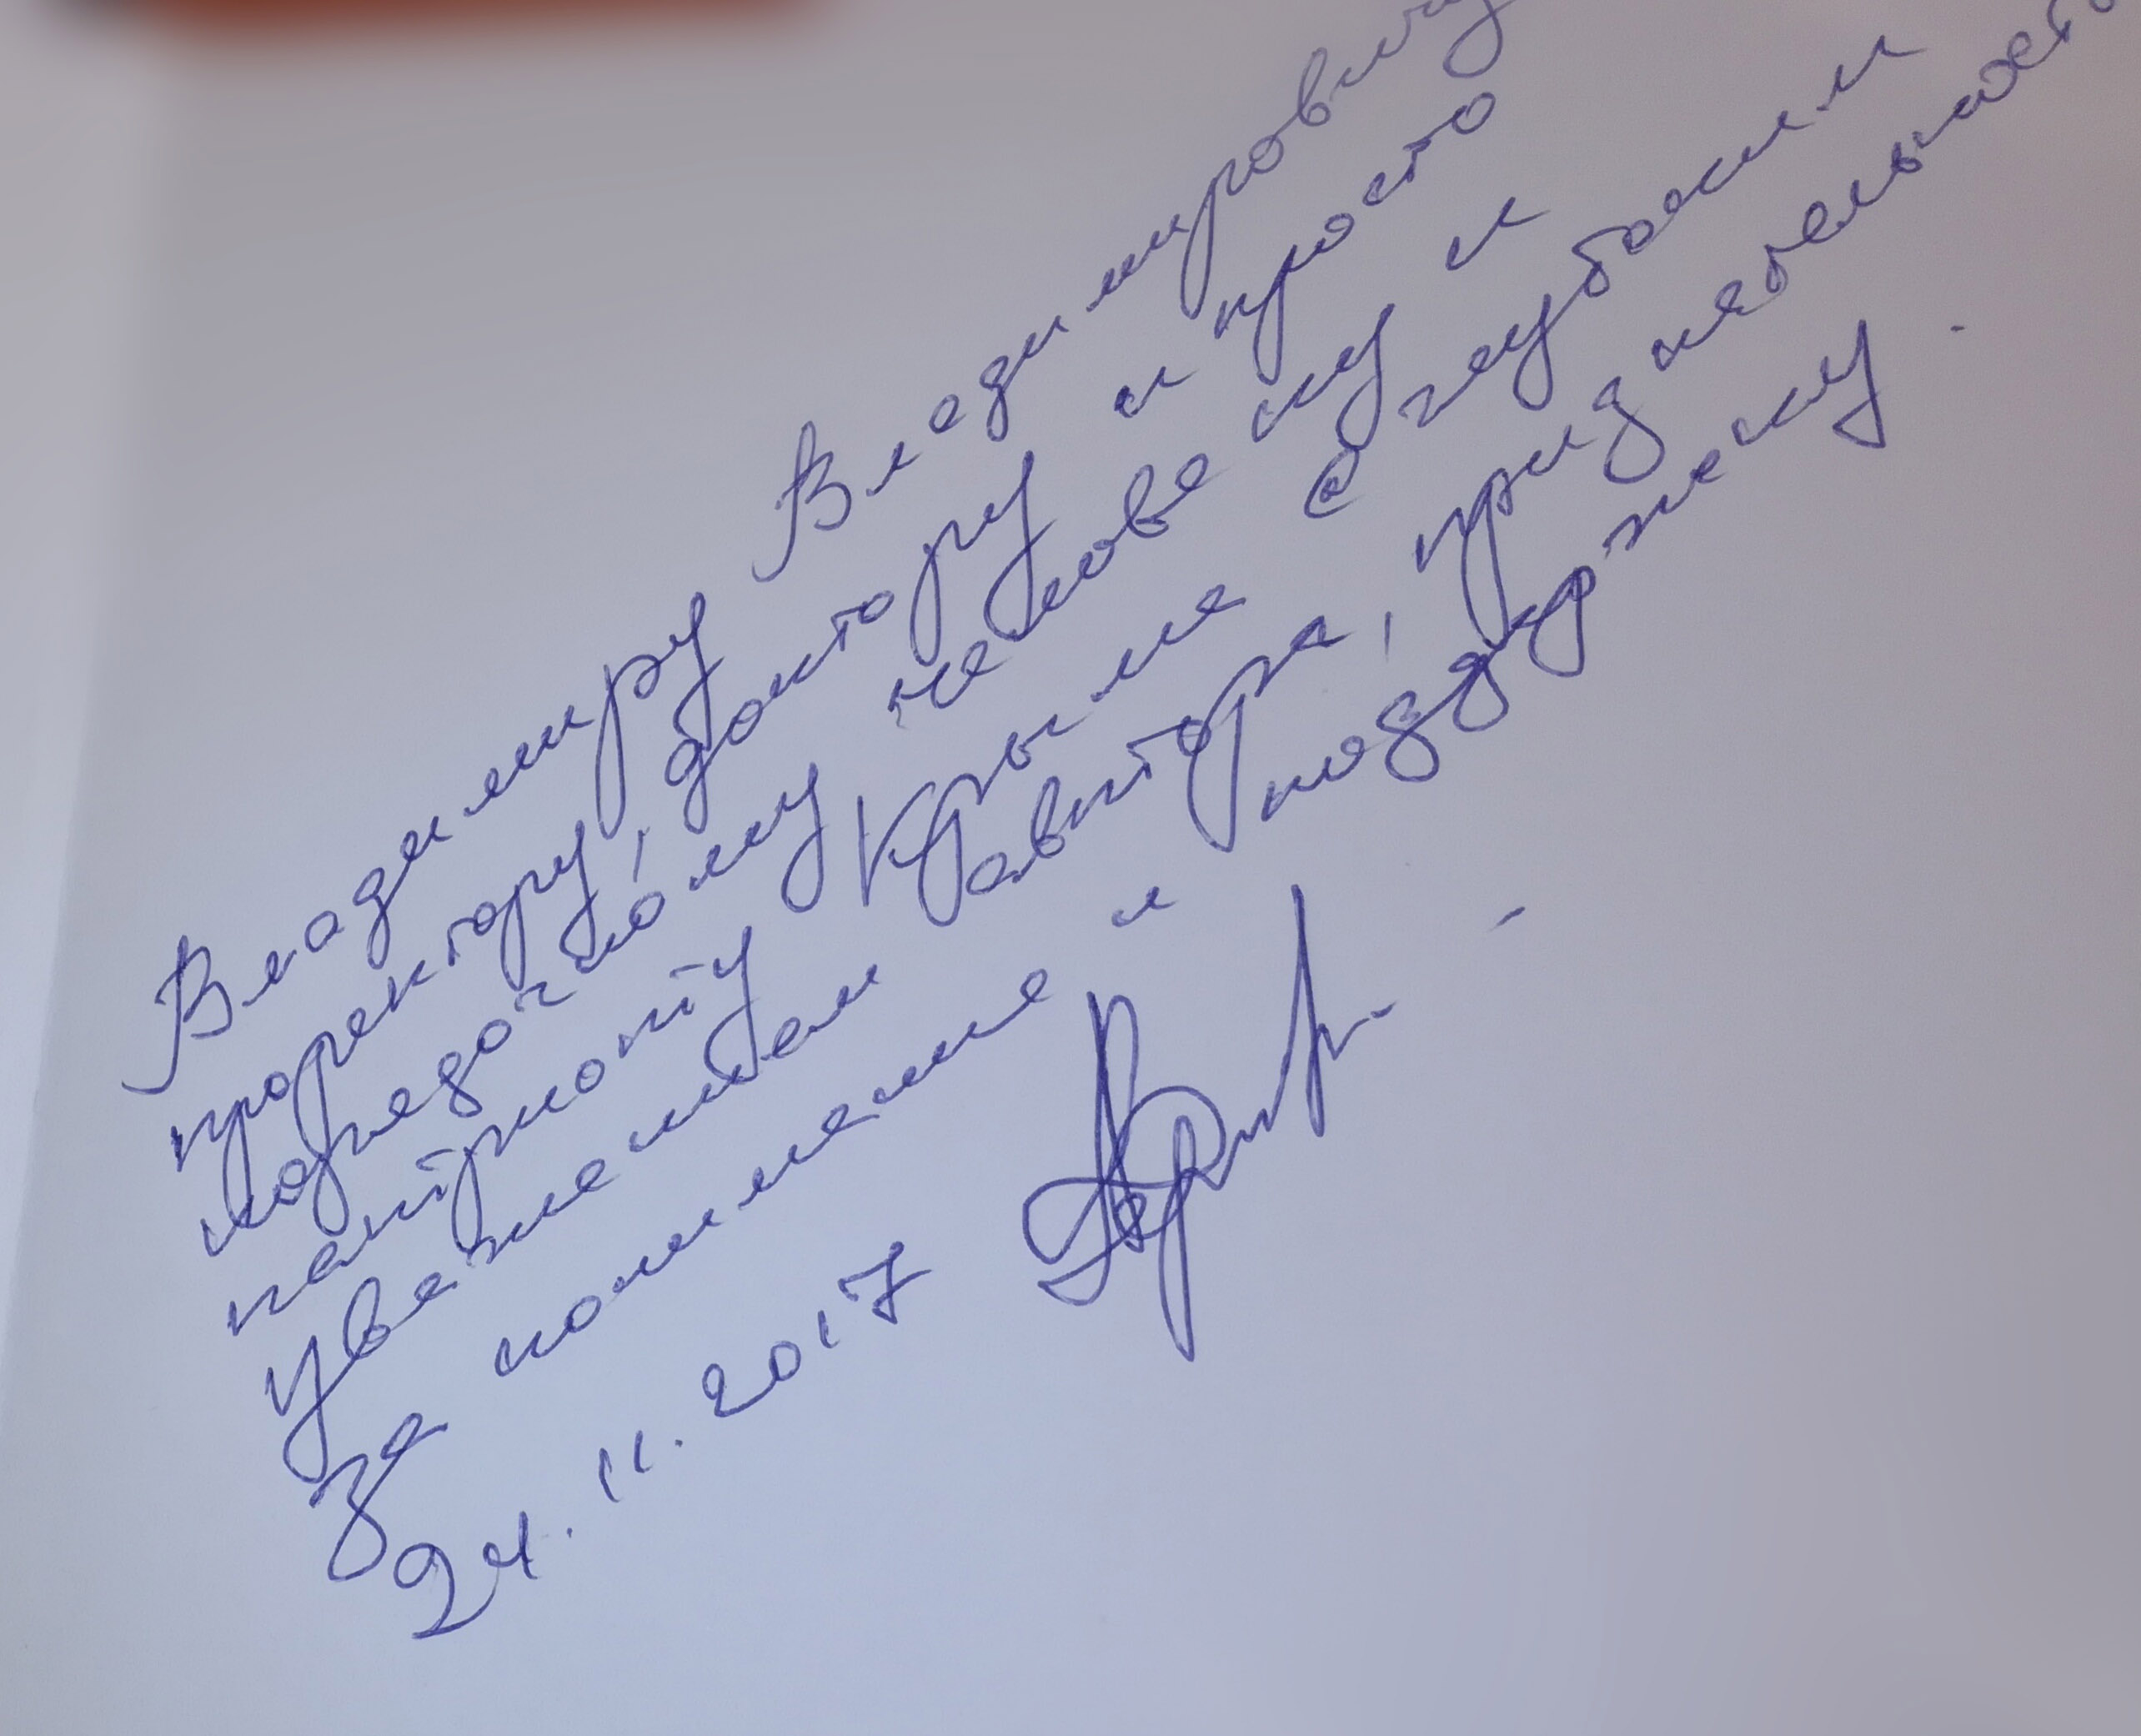 Владимиру Владимировичу
проректору, доктору и просто
порядочному человеку и
патриоту Крыма с глубоким
уважением автора, признательностью
за понимание и поддержку.
24.11.2017